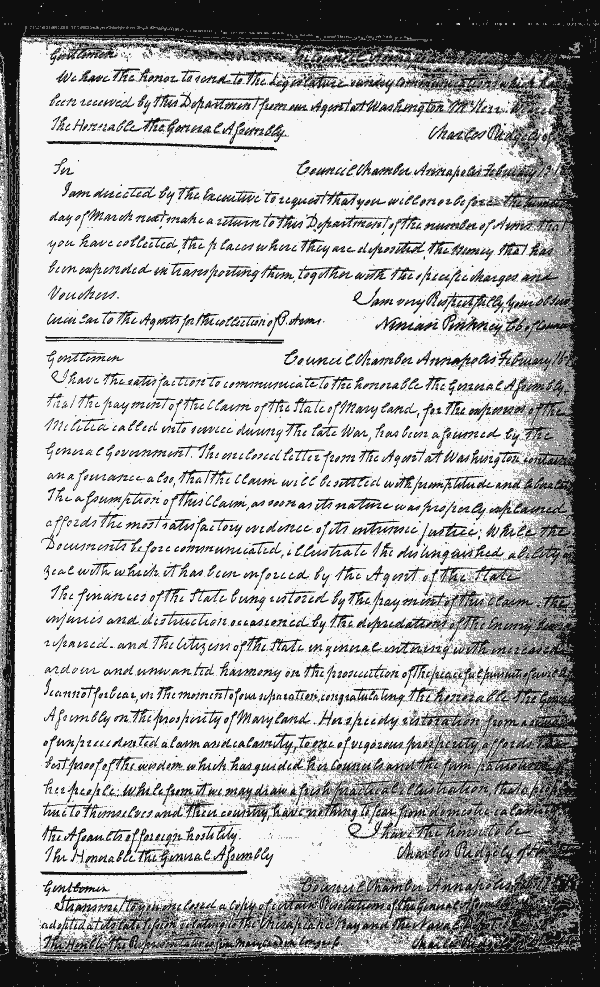 Gentlemen Council
We have the honor to send to the Legislature sundry communications which have
been received by this Department from our Agent at Washington Mr
The Honorable the General Assembly Charles Ridgely of
Sir Council Chamber Annapolis February
I am directed by the Executive to request that you will on or before the
day of March next make a return to this Department of the number of Arms that
you have collected, the places where they are deposited, the money that has
been expended in transporting them, together with the specific charges and
Vouchers. I am very Respectfully, your
Circular to the Agents for the collection of P. Arms. Ninian Pinkney Clk of Council
Gentlemen Council Chamber Annapolis February
I have the satisfaction to communicate to the honorable the General Assembly,
that the payment of the Claim of the State of Maryland, for the expenses of the
Militia called into service during the late War, has been assumed by the
General Government. The enclosed letter from the Agent at Washington contains
an assurance also, that the claim will be settled with promptitude and
The assumption of this Claim, as soon as its nature was properly explained
affords the most satisfactory evidence of its intrinsic justice; While the
Documents before communicated, illustrate the distinguished ability
zeal with which it has been enforced by the Agent of the State
The finances of the State being restored by the payment of this Claim. the
injuries and destruction occasioned by the depredations of the Enemy
repaired. and the Citizens of the State in general entering with increased
ardour and unwanted harmony on the prosecution of the peaceful pursuits of
I cannot forbear, in the moment of our separation, congratulating the honorable the General
Assembly on the prosperity of Maryland. Her speedy restoration from a
of unprecedented alarm and calamity, to one of vigorous prosperity affords the
best proof of the wisdom which has guided her Councils and the firm patriotism of
her people: While from it we may draw a fresh practical illustration that a people
true to themselves and their country, have nothing to fear from domestic calamity
the Assaults of foreign hostility. I have the honor to be
The Honorable the General Assembly Charles Ridgely of
Gentlemen Council Chamber Annapolis
I transmit to you enclosed a copy of certain Resolutions of the General
adopted at its late Session relating to the Chesapeake Bay and the Naval
The Honble the Representatives from Maryland in Congress Charles Ridgely